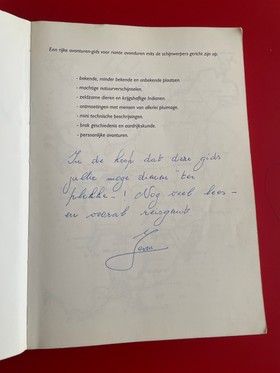 Een rijke avonturen-gids voor ronte avonturen mits de schijnwerpers gericht zijn op:
- bekende, minder bekende en onbekende plaatsen
- machtige natuurverschijnselen.
- zeldzame dieren en krijgshaftige Indianen.
- ontmoetingen met mensen van allerlei pluimage.
- mini technische beschrijvingen.
- brok geschiedenis en aardrijkskunde.
- persoonlijke avonturen.
In de hoop dat deze gids
jullie moge dienen "ter
plekke"! Nog veel lees-
en vooral reisgenot